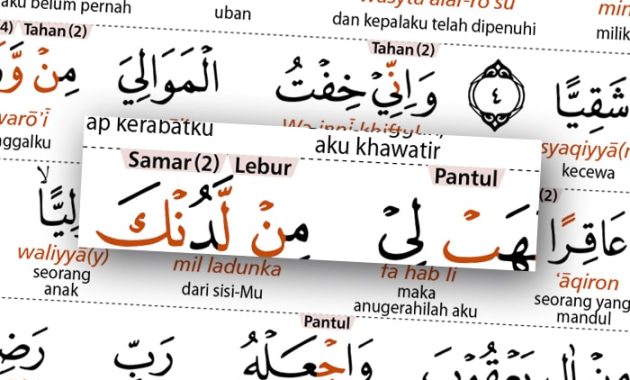 aku belum pernah uban Wasyta'alar-ro'su
dan kepalaku telah dipenuhi
Tahan (2) Tahan (2)
شَقِيًّا ٤ وَاِنِّيْ خِفْتُ الْمَوَالِيَ مِنْ
syaqiyyā
kecewa
ap kerabatku aku khawatir
Samar (2) Lebur Pantul
لِيْ مِنْ لَّدُنْكَ
عَاقِرًا
waliyyā(y) mil ladunka fa hab lī 'āqiron
seorang anak dari sisi-Mu maka anugerahilah aku seorang yang mandul
Pantul
يَعْقُوْبَ وَاجْعَلْهُ رَبِّ